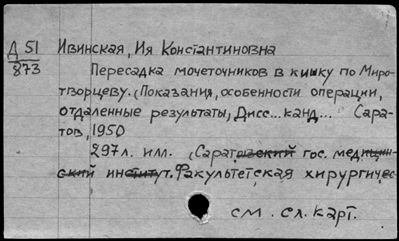 Д 51
873
Ивинская, Ия Константиновна
Пересадка мочеточников в кишку по Миро-
творцеву. (Показания, особенности операции,
отдаленные результаты, Дисс... канд... Сара-
тов, 1950
297 л. илл. (Саратовский гос. медицин-
ский институт. Факультетская хирургичес-
см. сл. карт.